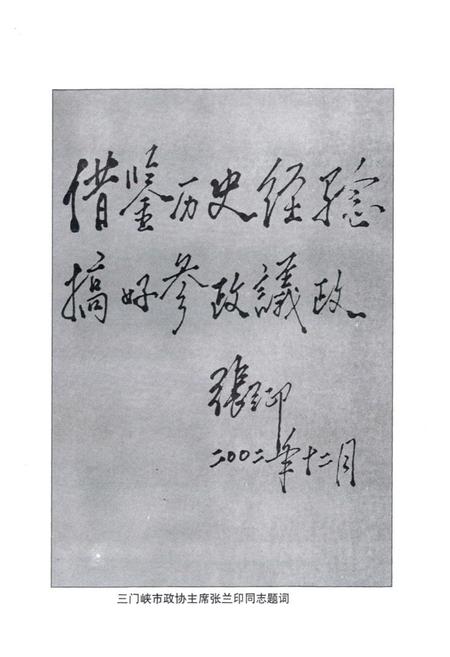 借鉴历史经验
搞好参政議政
張兰印
二〇〇二年十二月
三门峡市政协主席张兰印同志题词